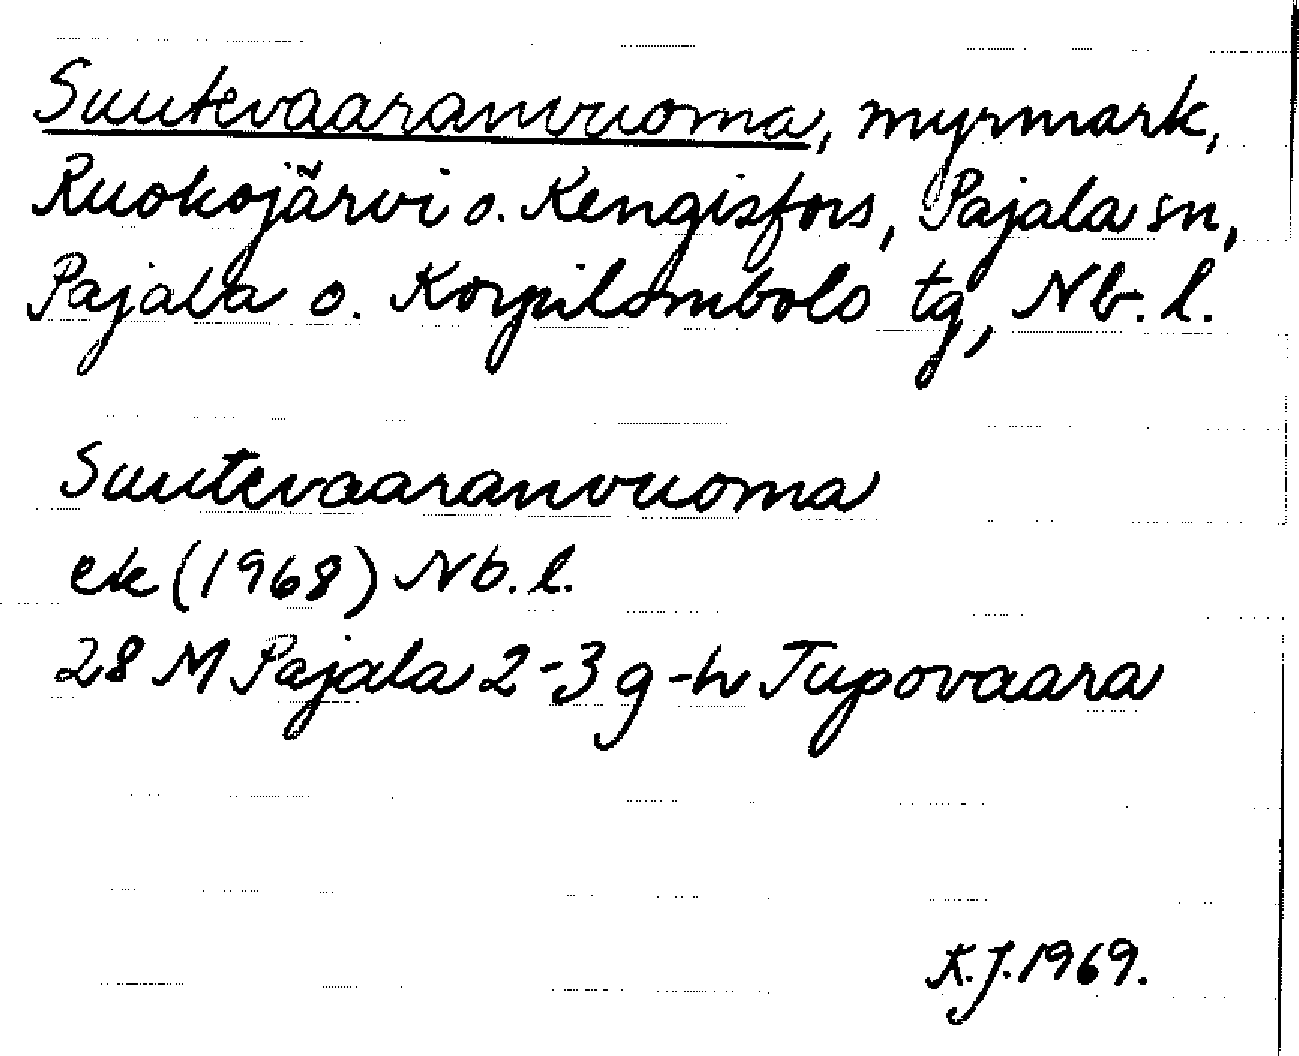 Suutevaaranvuoma, myrmark,
Ruokojärvi o. Kengisfors, Pajala sn,
Pajala o. Korpilombolo tg, Nb. l.
Suutevaaranvuoma
ek (1968) Nb. l.
28 M Pajala 2-3 g-h Tupovaara
K.J. 1969.